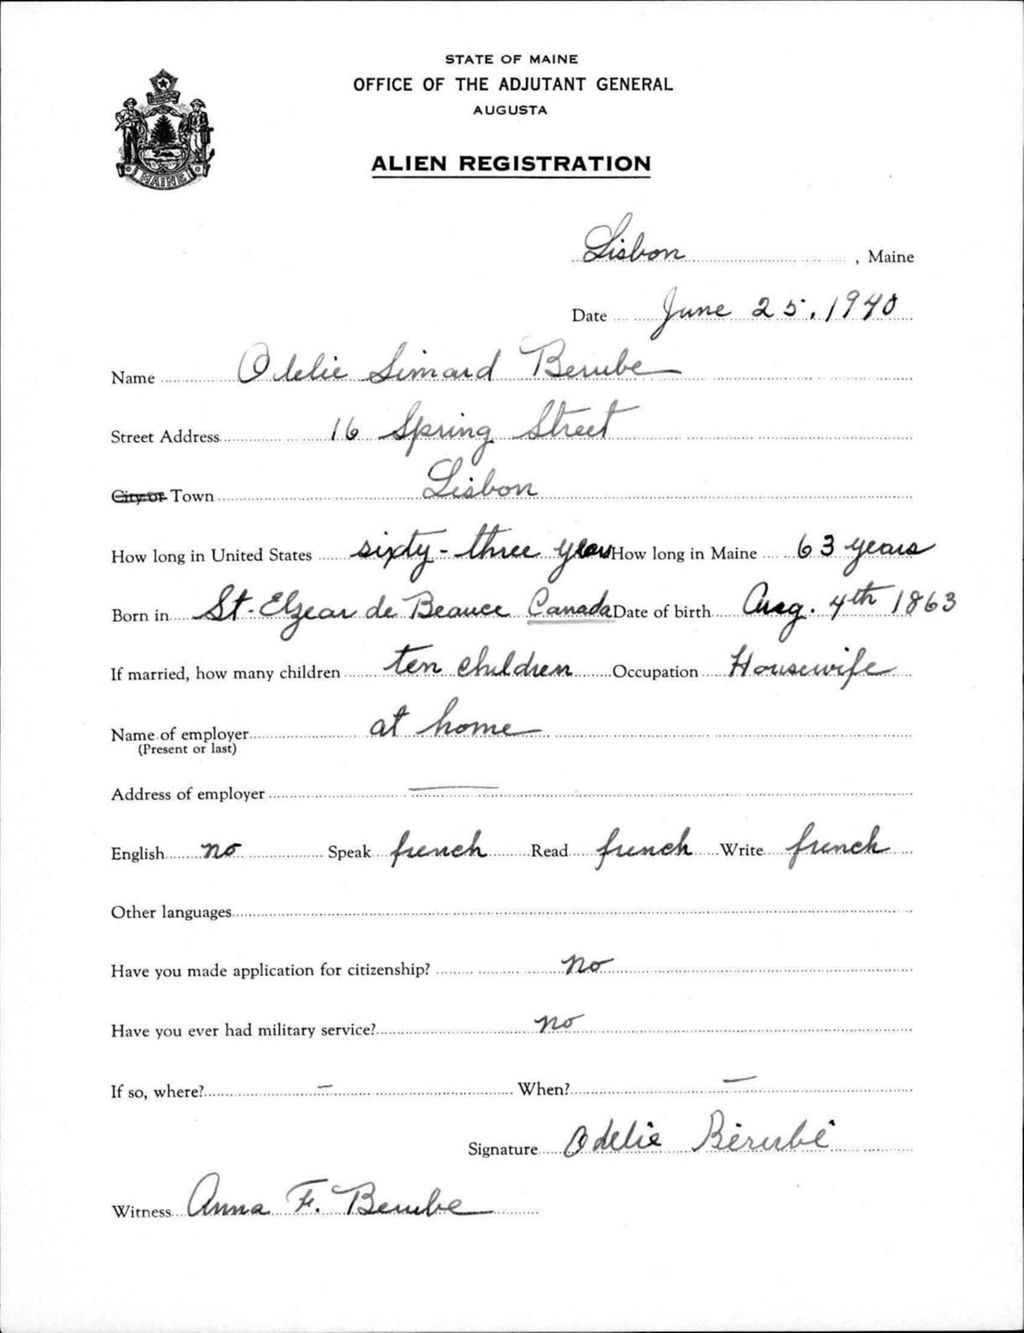 STATE OF MAINE
OFFICE OF THE ADJUTANT GENERAL
AUGUSTA
ALIEN REGISTRATION
MAINE
Lisbon, Maine
Date June 25, 1940
Name Odelie Simard Berube
Street Address 16 Spring Street
City or Town Lisbon
How long in United States sixty-three years How long in Maine 63 years
Born in St. Elzear de Beauce Canada Date of birth Aug. 4th 1863
If married, how many children ten children Occupation Housewife
Name of employer at home
(Present or last)
Address of employer —
English no Speak french Read french Write french
Other languages
Have you made application for citizenship? no
Have you ever had military service? no
If so, where? — When? —
Signature Odelie Bérubé
Witness Anna F. Berube